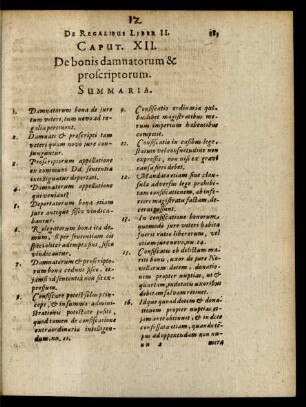 12
DE REGALIBUS LIBER II.
CAPUT. XII.
De bonis damnatorum &
proscriptorum.
SUMMARIA.
1. Damnatorum bona de jure
tum veteri, tum novo ad re-
galia pertinent.
2. Damnati & proscripti tam
veteri quàm novo jure con-
junguntur.
3. Proscriptorum appellatione
ex communi Dd. sententia
intelliguntur deportati.
4. Damnatorum appellatione
qui veniant?
5. Deportatorum bona etiam
jure antiquo fisco vindica-
bantur.
6. Relegatorum bona ita de-
mum, si per sententiam eis
specialiter adempta sint, fisco
vindic.
7. Damnatorum & proscripto-
rum bona cedunt fisco, et-
iamsi id sententia non sit ex-
pressum.
8. Confiscare potest solus prin-
ceps, & in summa admini-
strationis potestate positi,
quod tamen de confiscatione
extraordinaria intelligen-
dum. nn. 11.
9. Confiscatio ordinaria qui-
buslibet magistratibus me-
rum imperium habentibus
competit.
11. Confiscatio in casibus lege,
statuto vel consuetudine non
expressis, non nisi ex gravi
causa fieri debet.
12. Mandata etiam sine clau-
sula adversus lege prohibi-
tam confiscationem, ab infe-
riore magistratu factam, de-
cerni possunt.
13. In confiscatione bonorum,
quomodo jure veteri habita
fuerit ratio liberorum, vel
etiam jure novo, nu. 14.
15. Confiscatis ob delictum ma-
riti bonis, uxor de jure No-
vellarum dotem, donatio-
nem propter nuptias, ut &
quartam, juditatu uxoribus
debitam salvam retinet.
16. Idque quod de dote & dona-
tione propter nuptias et-
jam ante obtinuit, & in dote
confessata etiam, quando ta-
pus ad opponendum non nu-
nn 2 mera